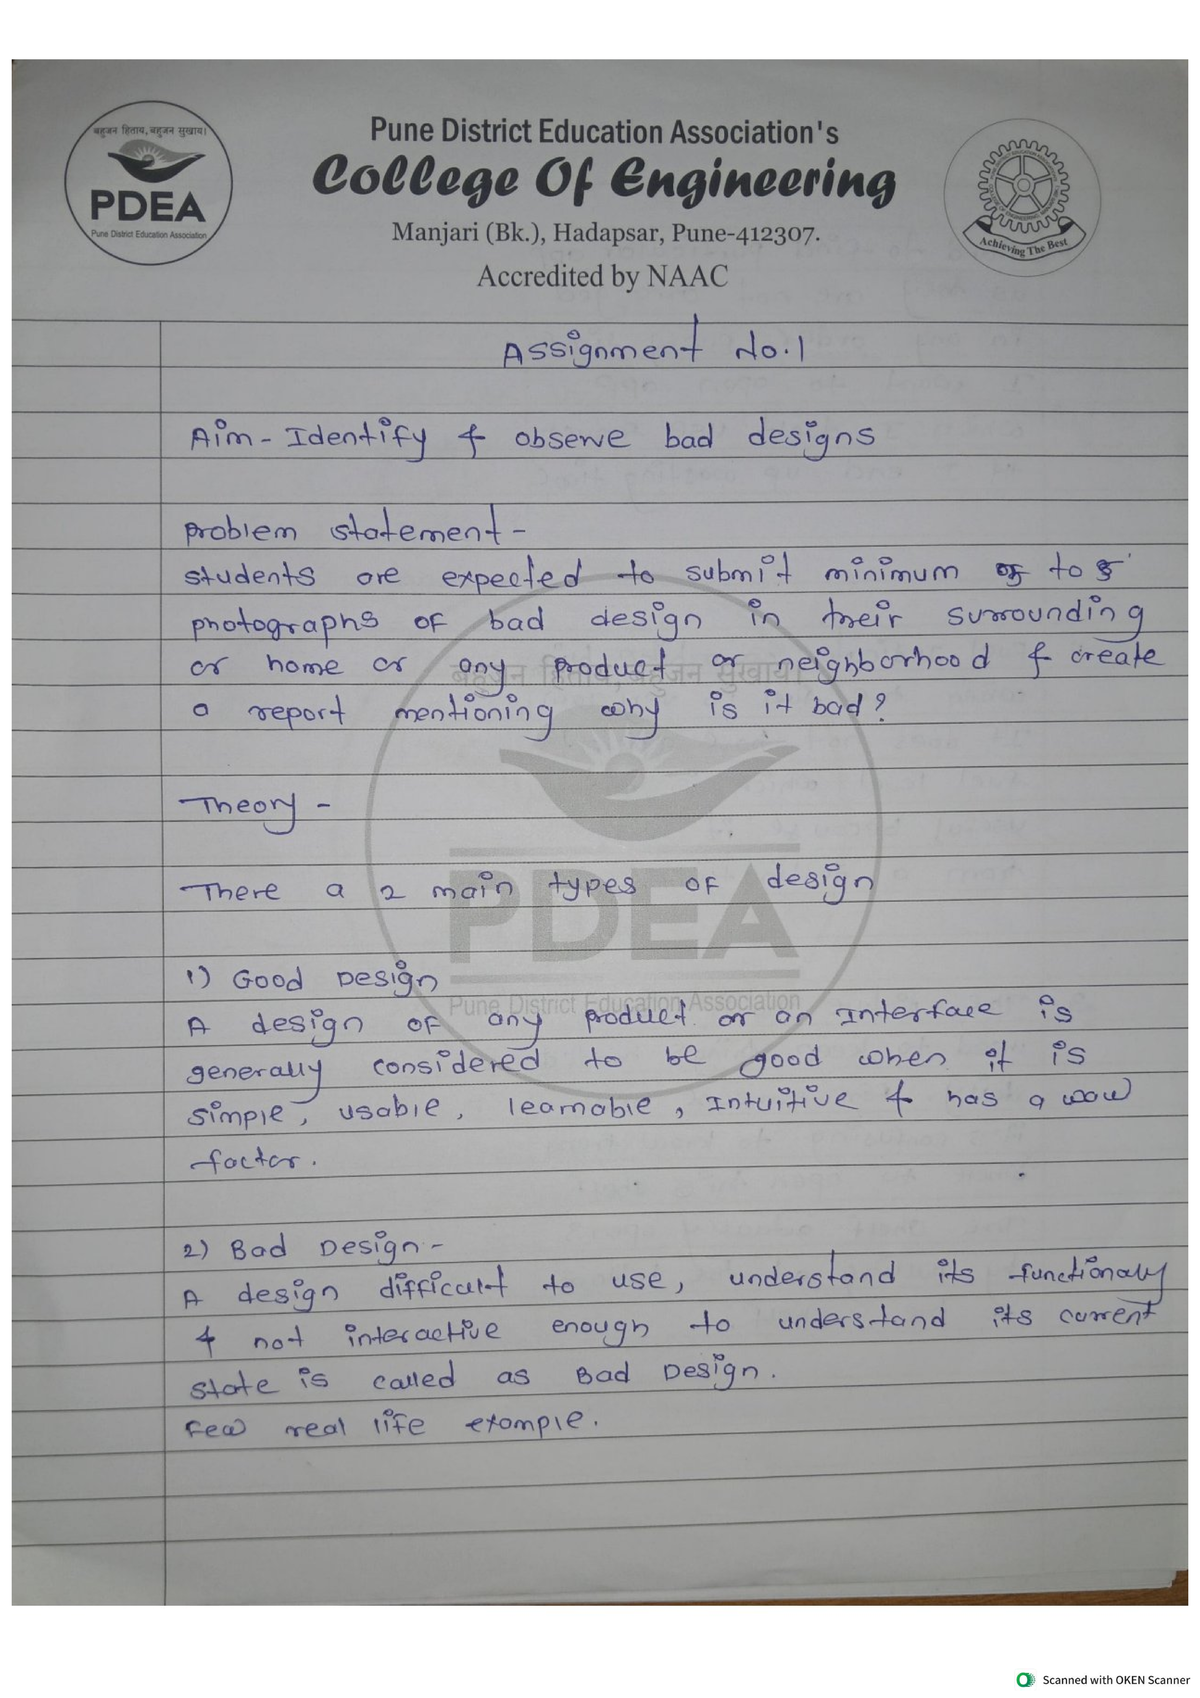 बहुजन हिताय, बहुजन सुखाय।
PDEA
Pune District Education Association
Pune District Education Association's
College Of Engineering
Manjari (Bk.), Hadapsar, Pune-412307.
Accredited by NAAC
Achieving The Best
Assignment No.1
Aim - Identify & observe bad designs
Problem statement -
students are expected to submit minimum to 5
photographs of bad design in their surrounding
or home or any product or neighborhood & create
a report mentioning why is it bad?
Theory -
There a 2 main types of design
1) Good Design
A design of any product or an Interface is
generally considered to be good when it is
simple, usable, learnable, Intuitive & has a wow
factor.
2) Bad Design -
A design difficult to use, understand its functionaly
& not interactive enough to understand its current
state is called as Bad Design.
Few real life example.
बहुजन हिताय, बहुजन सुखाय।
PDEA
Pune District Education Association
Scanned with OKEN Scanner